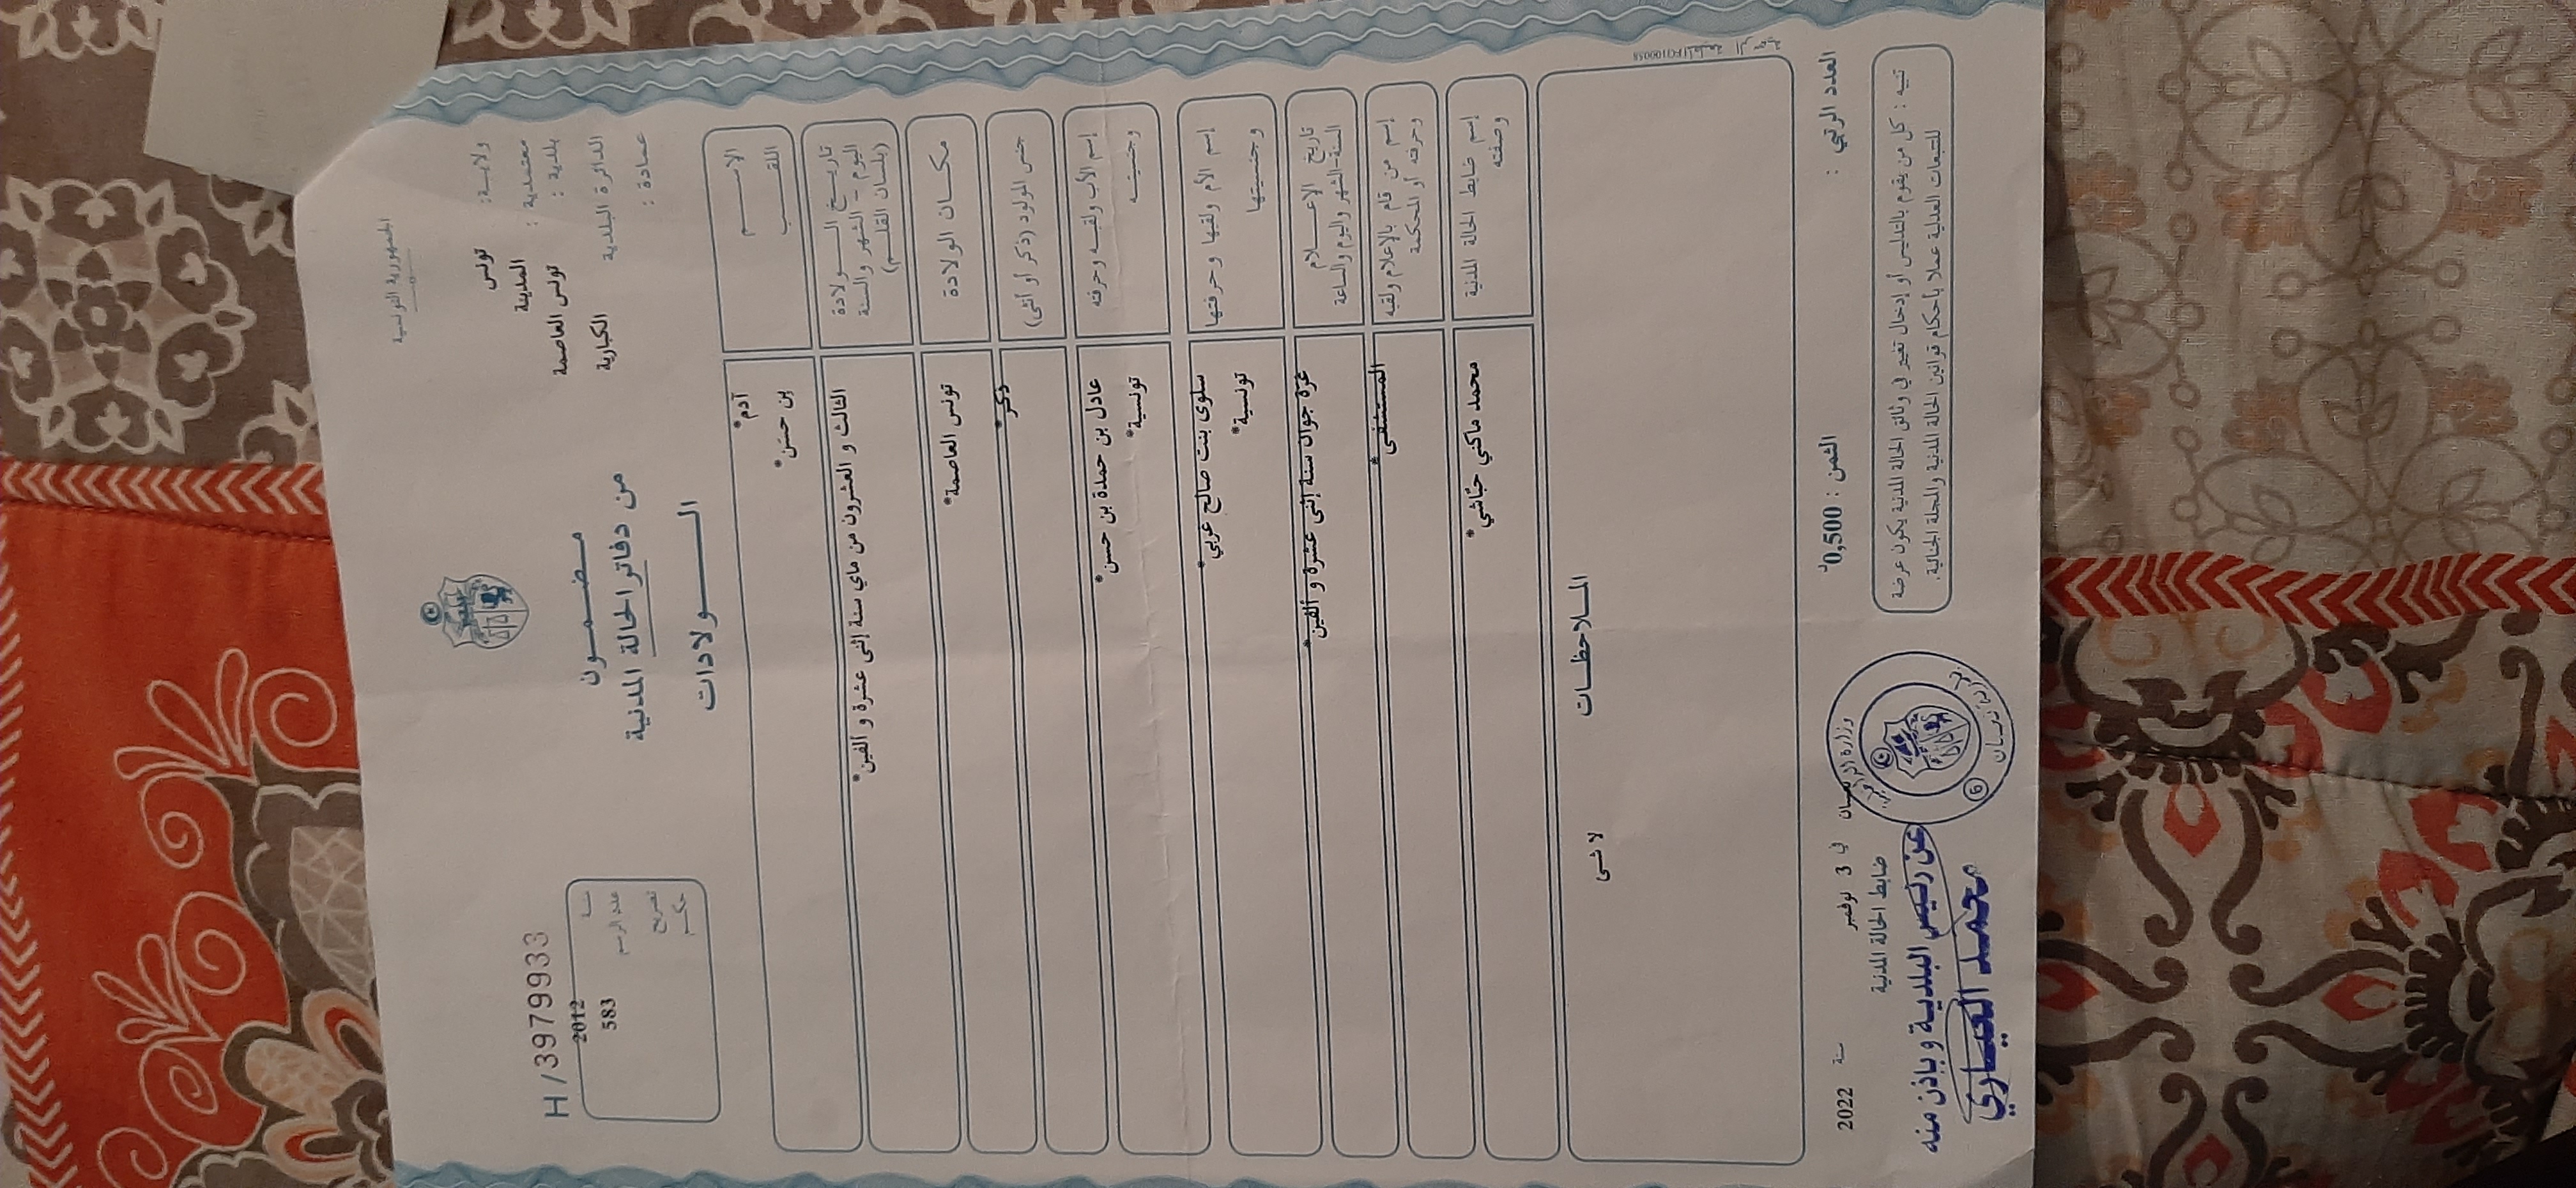 الجمهورية التونسية
ولاية: تونس
معتمدية : المدينة
بلدية : تونس العاصمة
الدائرة البلدية الكبارية
عمادة :
مضمون
من دفاتر الحالة المدنية
الولادات
H/3979933
سنة 2012
عدد الرسم 583
تصريح
حكم
الاسم آدم*
اللقب بن حسن*
تاريخ الولادة
اليوم - الشهر والسنة
(بلسان القلم)
الثالث و العشرون من ماي سنة إثنى عشرة و ألفين*
مكان الولادة تونس العاصمة*
جنس المولود (ذكر أو أنثى) ذكر*
إسم الأب ولقبه وحرفته عادل بن حمدة بن حسن*
وجنسيته تونسية*
إسم الأم ولقبها وحرفتها سلوى بنت صالح عربي*
وجنسيتها تونسية*
تاريخ الإعلام
السنة-الشهر واليوم والساعة
غرة جوان سنة إثنى عشرة و ألفين*
إسم من قام بالإعلام ولقبه
وحرفته أو المحكمة
المستشفى*
إسم ضابط الحالة المدنية
وصفته
محمد ماكني حبّاشي*
الملاحظات
لا شئ
المطبعة الرسمية
العدد الرتبي :
الثمن : 0,500د
في 3 نوفمبر سنة 2022
ضابط الحالة المدنية
تنبيه : كل من يقوم بالتدليس أو إدخال تغيير في وثائق الحالة المدنية يكون عرضة
للتتبعات العدلية عملا بأحكام قوانين الحالة المدنية والمجلة الجنائية.
عن رئيس البلدية وبإذن منه
محمد العياري